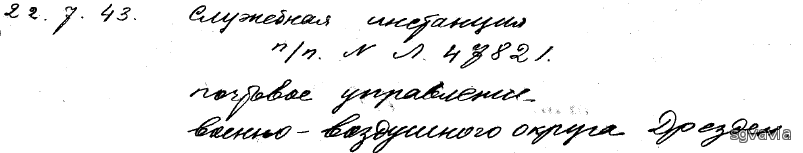 22.7.43. Служебная инстанция
п/п. N Л. 47821.
почтовое управлени-
военно-воздушного округа Дрезден
sgvavia